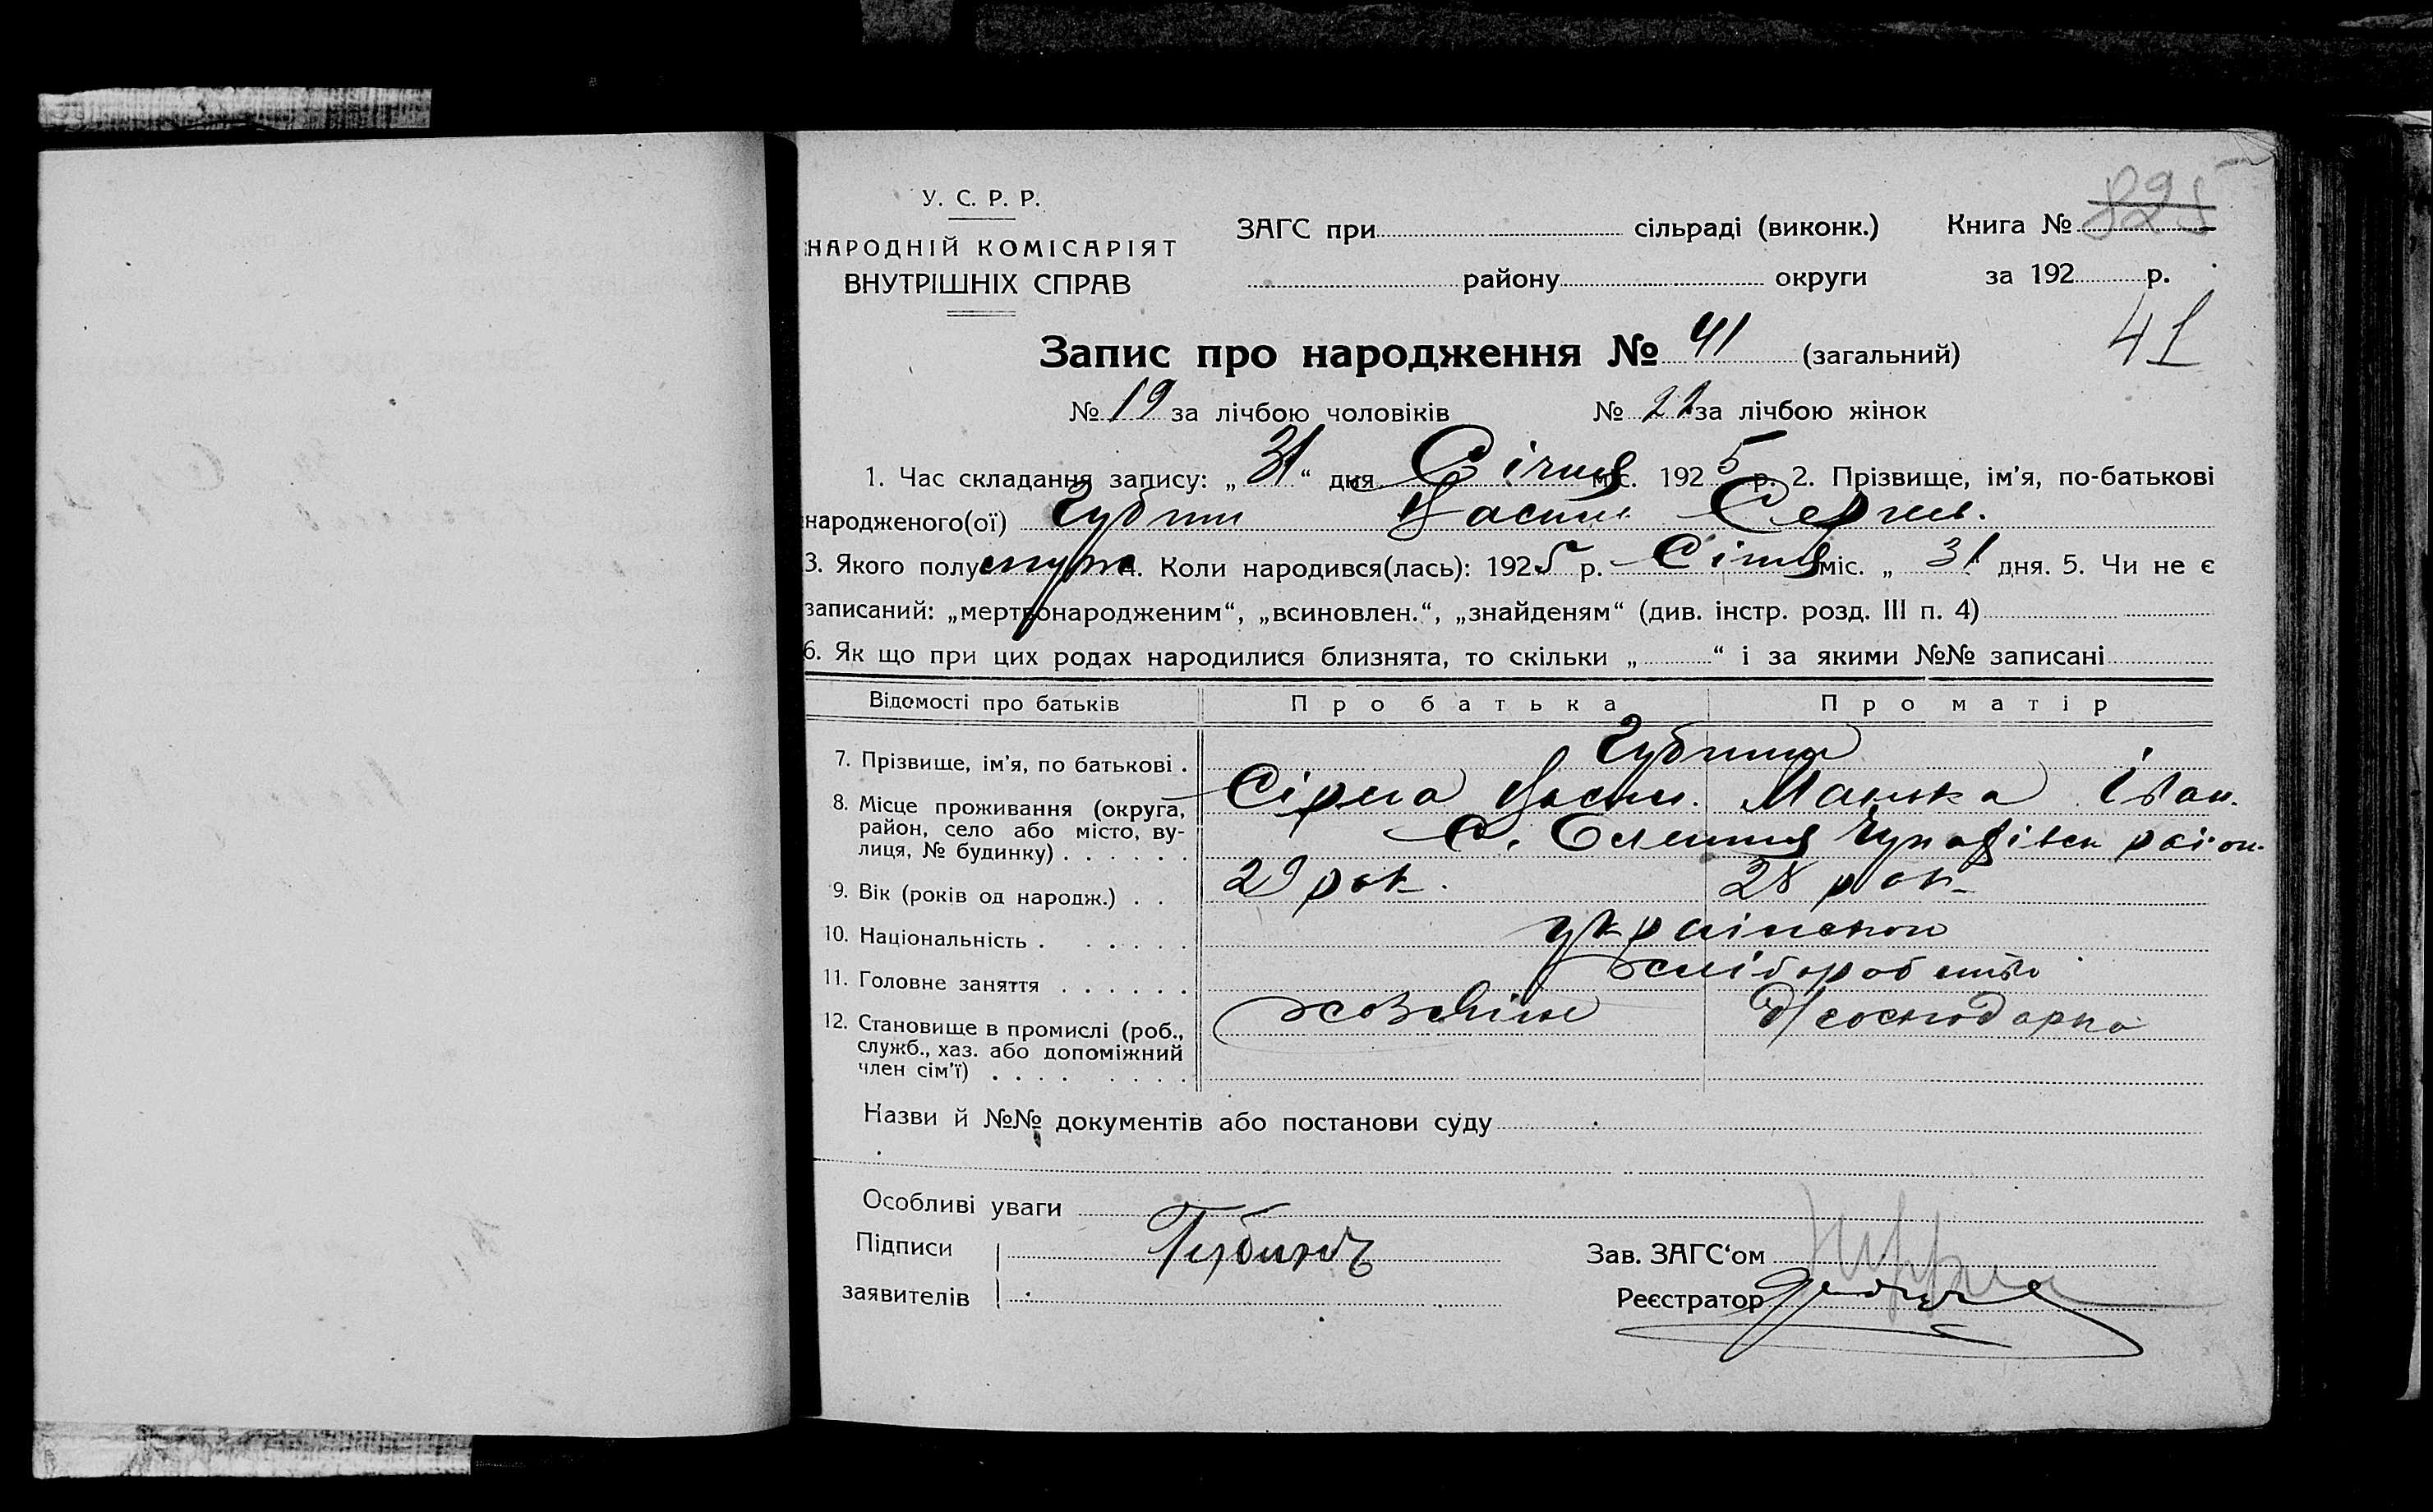 У. С. Р. Р.
НАРОДНІЙ КОМІСАРІЯТ
ВНУТРІШНІХ СПРАВ
ЗАГС при сільраді (виконк.) Книга № 825
району округи за 192 р.
41
Запис про народження № 41 (загальний)
№ 19 за лічбою чоловіків № 22 за лічбою жінок
1. Час складання запису: „ 31 “ дня Січня міс. 1925 р. 2. Прізвище, ім'я, по-батькові
народженого(ої) Губин Васил Сергиев.
3. Якого полу муж 4. Коли народився(лась): 1925 р. Січня міс. „ 31 дня. 5. Чи не є
записаний: „мертвонародженим“, „всиновлен.“, „знайденям“ (див. інстр. розд. III п. 4)
6. Як що при цих родах народилися близнята, то скільки „ “ і за якими №№ записані
Відомості про батьків Про батька Про матір
Губини
7. Прізвище, ім'я, по батькові .
Васил. Іван.
8. Місце проживання (округа,
район, село або місто, ву-
лиця, № будинку) . . . . . .
С. район.
9. Вік (років од народж.) . . 29 рок. 28 рок.
10. Національність . . . . . .
11. Головне заняття . . . . . . хлібороб
12. Становище в промислі (роб.,
служб., хаз. або допоміжний
член сім'ї) . . . . . . . .
господарка
Назви й №№ документів або постанови суду
Особливі уваги
Підписи Губинъ Зав. ЗАГС‘ом
заявителів Реєстратор